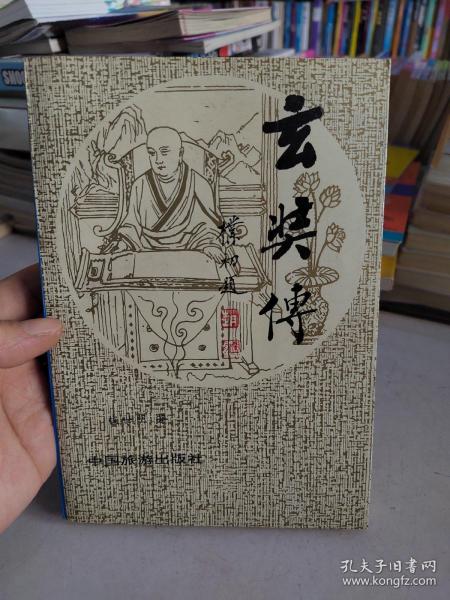 玄奘傳
樸初題
著
中国旅游出版社
SHOO
孔夫子旧书网
www.kongfz.com